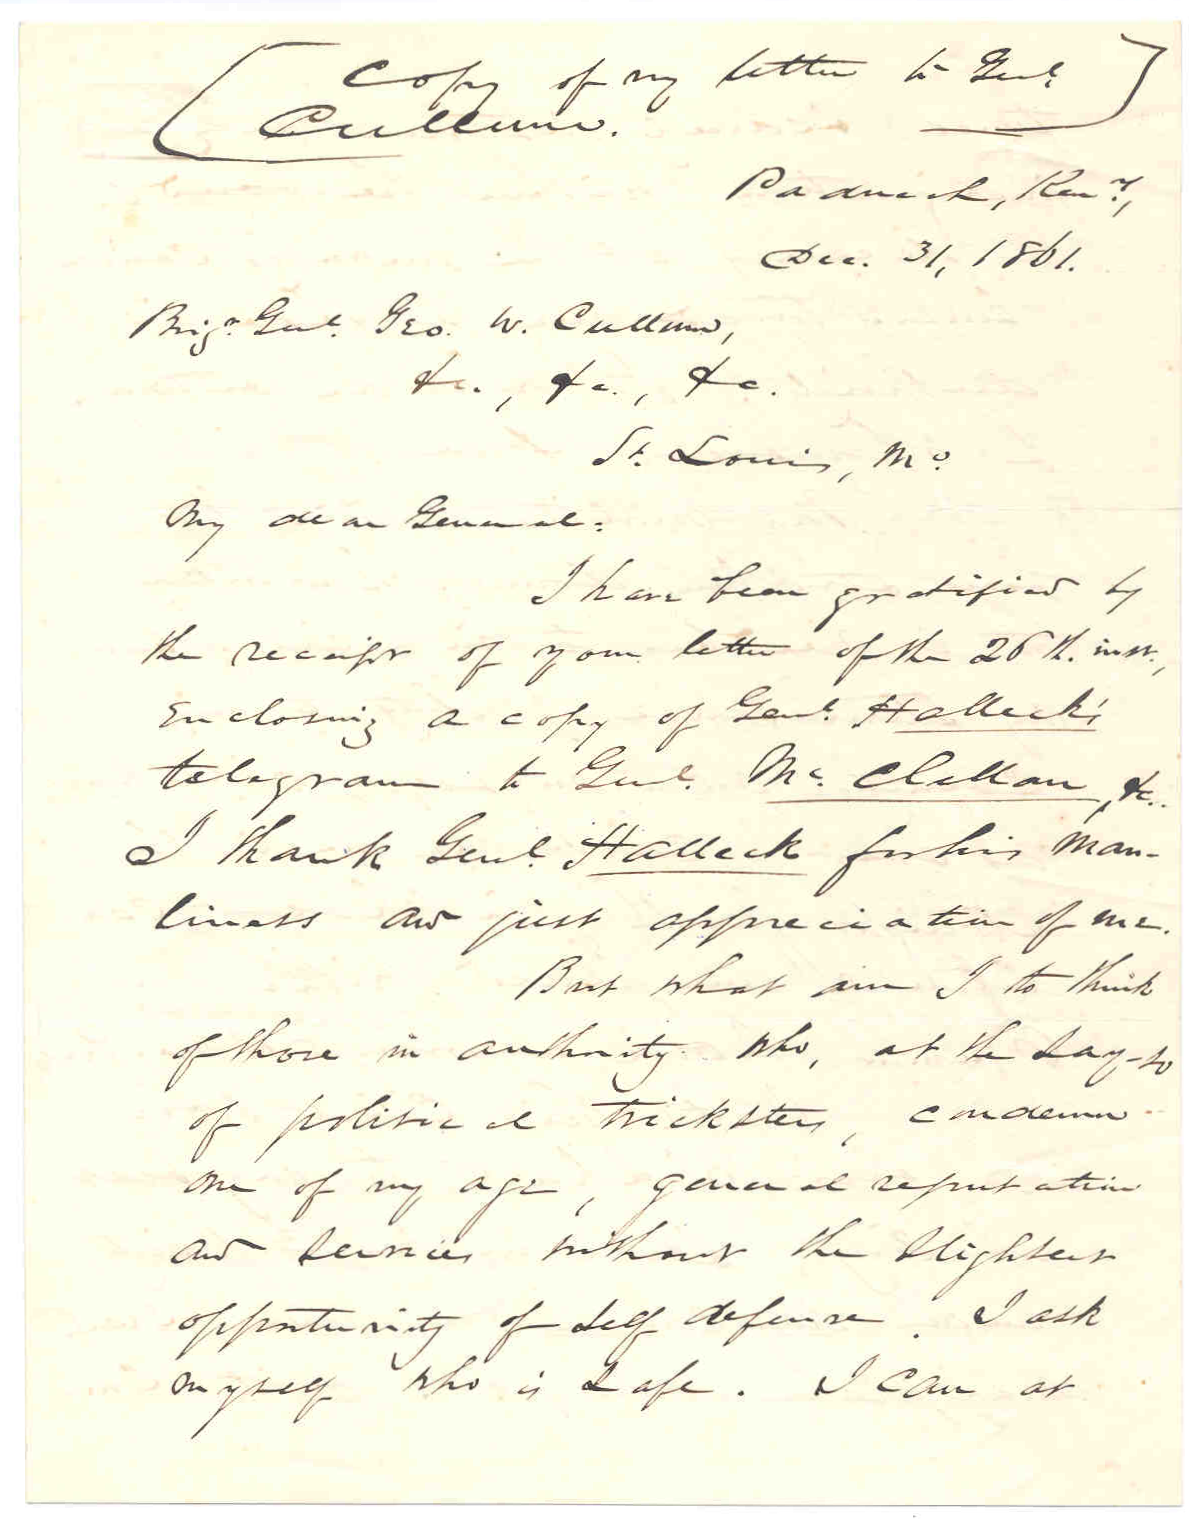 Copy of my letter to Genl.
Cullum.
Paducah, Keny.,
Dec. 31, 1861.
Brigr. Genl. Geo. W. Cullum,
&c., &c., &c.
St. Louis, Mo
My dear General:
I have been gratified by
the receipt of your letter of the 26th. inst.,
Enclosing a copy of Genl. Halleck's
telegram to Genl. Mc. Clellan, &c.
I thank Genl. Halleck for his man-
liness and just appreciation of me.
But what am I to think
of those in authority who, at the say-so
of political tricksters, condemn
one of my age, general reputation
and services without the slightest
opportunity of self defense. I ask
myself who is safe. I can at